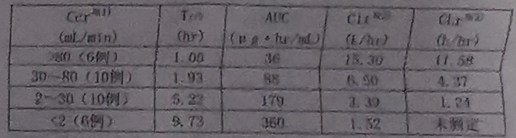 Ccr注1) T1/2 AUC Clt注2) Clr注3)
(mL/min) (hr) (μg·hr/mL) (L/hr) (L/hr)
>80 (6例) 1.06 36 15.30 11.58
30~80 (10例) 1.93 88 6.50 4.37
2~30 (10例) 5.22 179 3.39 1.24
<2 (6例) 9.73 360 1.52 未测定